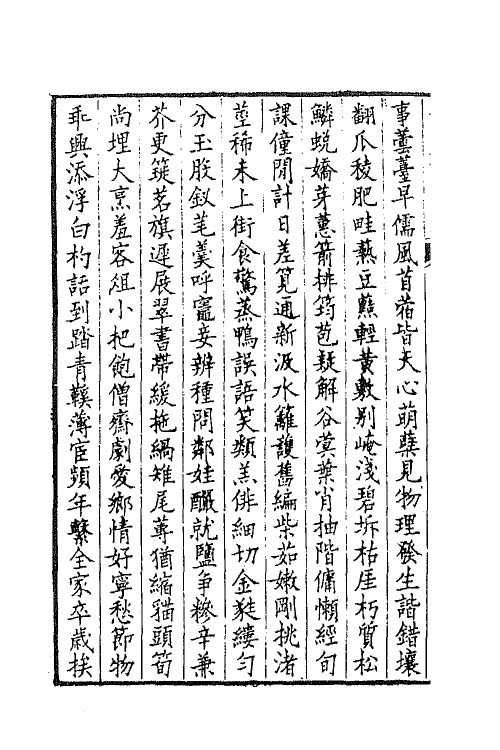 事蕓薹早儒風苜蓿皆天心萌蘖見物理發生諧錯壤
翻瓜稜肥畦爇豆蘸輕黄敷别崦淺碧坼枯厓朽質松
鱗蛻嬌芽蕙箭排筠苞疑解谷蓂葉肖抽階傭懶經旬
課僮閒計日差筧通新汲水籬護舊編柴茹嫩剛挑渚
莖稀未上街食驚蒸鴨誤語笑類羔俳細切金蕤縷勻
分玉股釵芼羹呼竈妾辨種問鄰娃釅就鹽争糝辛兼
芥更簁茗旗遲展翠書帶緩拖緺雉尾蓴猶縮貓頭筍
尚埋大烹羞容俎小把飽僧齋劇愛鄉情好寧愁節物
乖興添浮白杓話到踏青鞵薄宦頻年繫全家卒歲挨